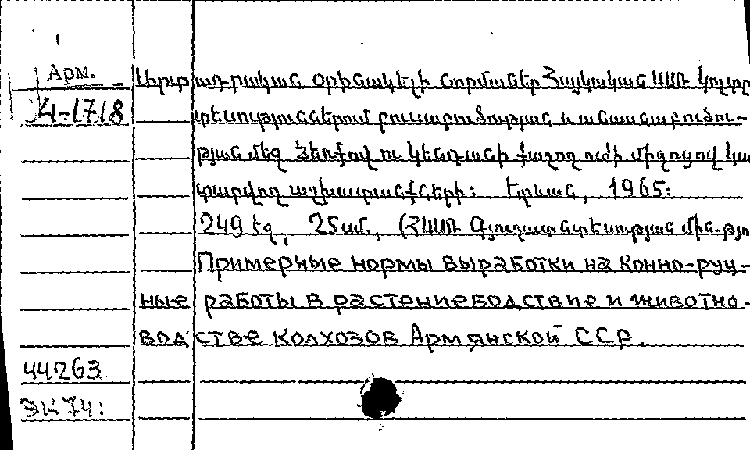 Арм.
4-1718
Արտադրական օրինակելի նորմաներ Հայկական ՍՍՌ կոլտըն-
տեսություններում բուսաբուծության և անասնաբուծու-
թյան մեջ ձեռքով ու կենդանի քաշող ուժի միջոցով կա-
տարվող աշխատանքների: Երևան, 1965:
249 էջ, 25սմ, (ՀՍՍՌ Գյուղատնտեսության մին-թյո
Примерные нормы выработки на конно-руч-
ные работы в растениеводствие и животно-
водстве колхозов Армянской ССР.
44263